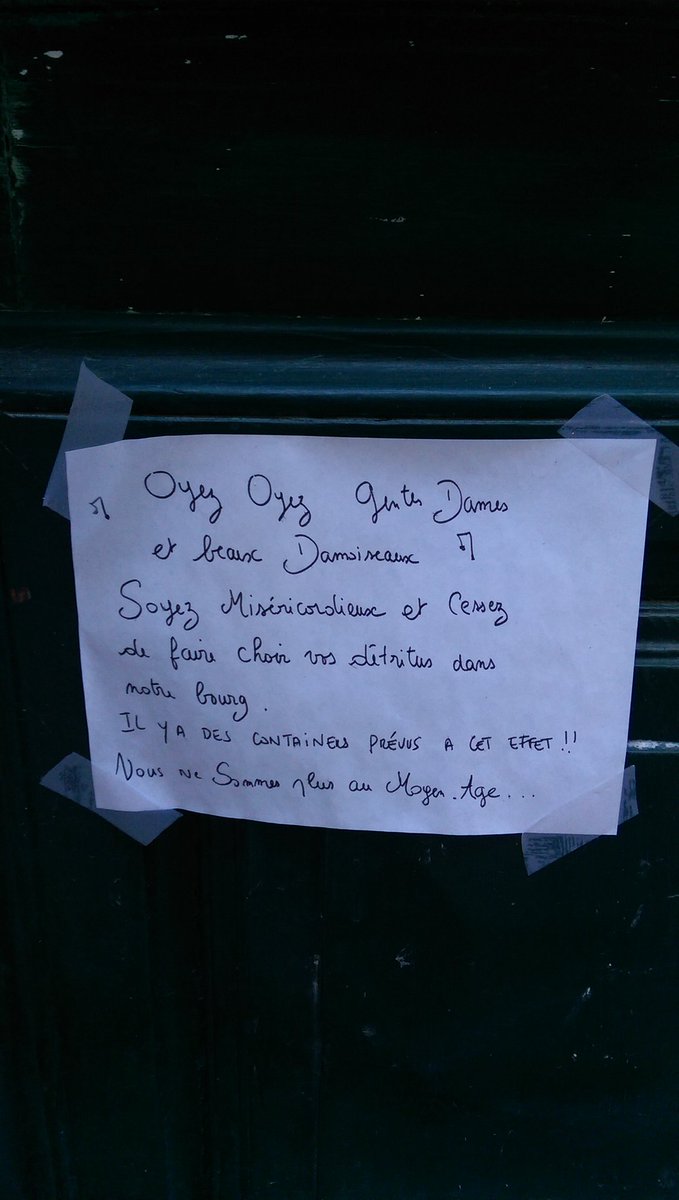 ♫ Oyez Oyez Gentes Dames
et beaux Damoiseaux ♫
Soyez Miséricordieux et Cessez
de faire choir vos détritus dans
notre bourg.
IL Y A DES CONTAINERS PRÉVUS A CET EFFET !!
Nous ne Sommes plus au Moyen-Age...